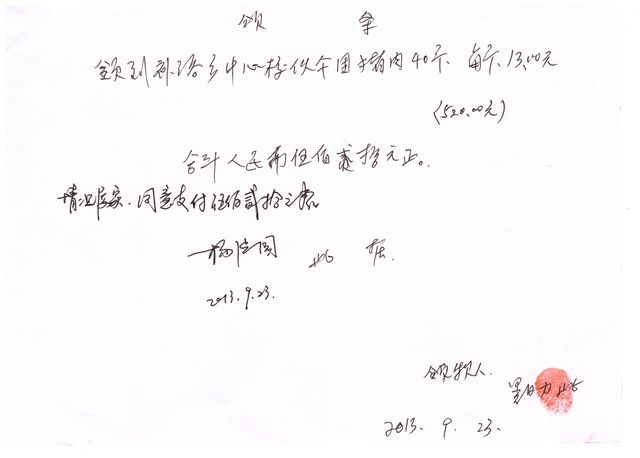 领 拿
领到补洛乡中心校伙伞团猪肉40斤、每斤13.00元
(520.00元)
合计人民币伍佰贰拾元正。
情况属实.同意支付伍佰贰拾元整
杨
此 据.
2013.9.23.
领款人.
日力
2013. 9. 23.